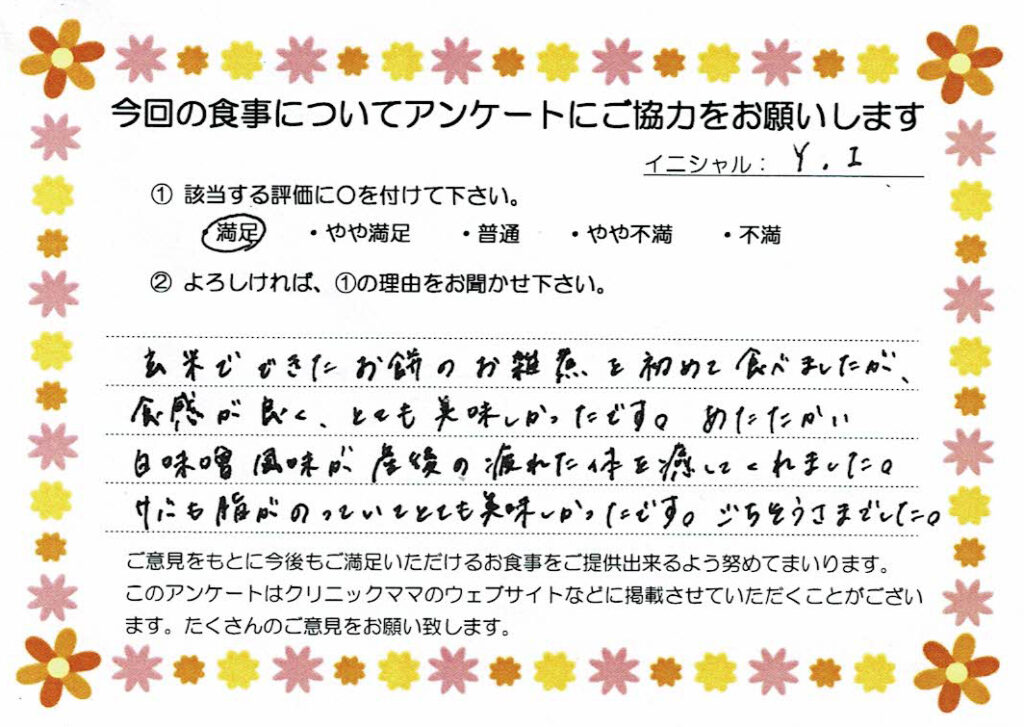 今回の食事についてアンケートにご協力をお願いします
イニシャル： Y . I
① 該当する評価に〇を付けて下さい。
・満足 ・やや満足 ・普通 ・やや不満 ・不満
② よろしければ、①の理由をお聞かせ下さい。
玄米でできたお餅のお雑煮を初めて食べましたが、
食感が良く、とても美味しかったです。あたたかい
白味噌風味が産後の疲れた体を癒してくれました。
も脂がのっていてとても美味しかったです。ごちそうさまでした。
ご意見をもとに今後もご満足いただけるお食事をご提供出来るよう努めてまいります。
このアンケートはクリニックママのウェブサイトなどに掲載させていただくことがござい
ます。たくさんのご意見をお願い致します。